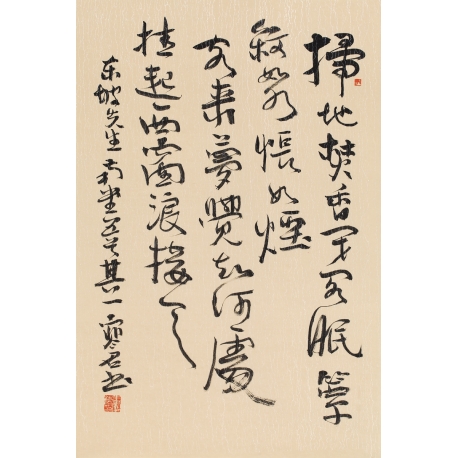 掃地焚香閉閣眠簟
紋如水帳如煙
客來夢覺知何處
挂起西窗浪接天
东坡先生南堂五首其一 书